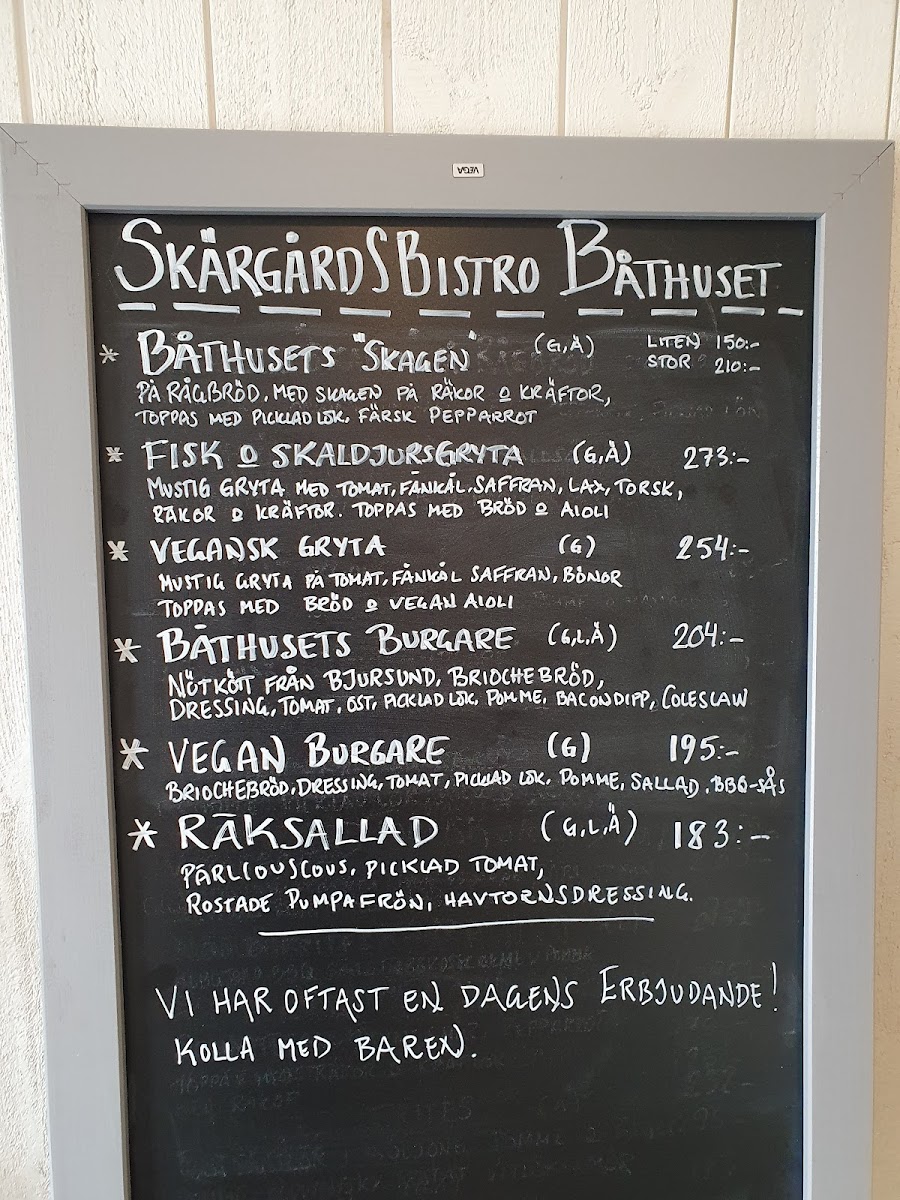 VEGA
SKÄRGÅRDSBISTRO BÅTHUSET
* BÅTHUSETS "SKAGEN" (G,Ä) LITEN 150:-
STOR 210:-
PÅ RÅGBRÖD, MED SKAGEN PÅ RÄKOR O KRÄFTOR,
TOPPAS MED PICKLAD LÖK, FÄRSK PEPPARROT
* FISK O SKALDJURSGRYTA (G,Ä) 273:-
MUSTIG GRYTA MED TOMAT, FÄNKÅL, SAFFRAN, LAX, TORSK,
RÄKOR O KRÄFTOR. TOPPAS MED BRÖD O AIOLI
* VEGANSK GRYTA (G) 254:-
MUSTIG GRYTA PÅ TOMAT, FÄNKÅL SAFFRAN, BÖNOR
TOPPAS MED BRÖD O VEGAN AIOLI
* BÅTHUSETS BURGARE (G,L,Ä) 204:-
NÖTKÖTT FRÅN BJURSUND, BRIOCHEBRÖD,
DRESSING, TOMAT, OST, PICKLAD LÖK, POMME, BACONDIPP, COLESLAW
* VEGAN BURGARE (G) 195:-
BRIOCHEBRÖD, DRESSING, TOMAT, PICKLAD LÖK, POMME, SALLAD, BBQ-SÅS
* RÄKSALLAD (G,L,Ä) 183:-
PÄRLCOUSCOUS, PICKLAD TOMAT,
ROSTADE PUMPAFRÖN, HAVTORNSDRESSING.
VI HAR OFTAST EN DAGENS ERBJUDANDE!
KOLLA MED BAREN.